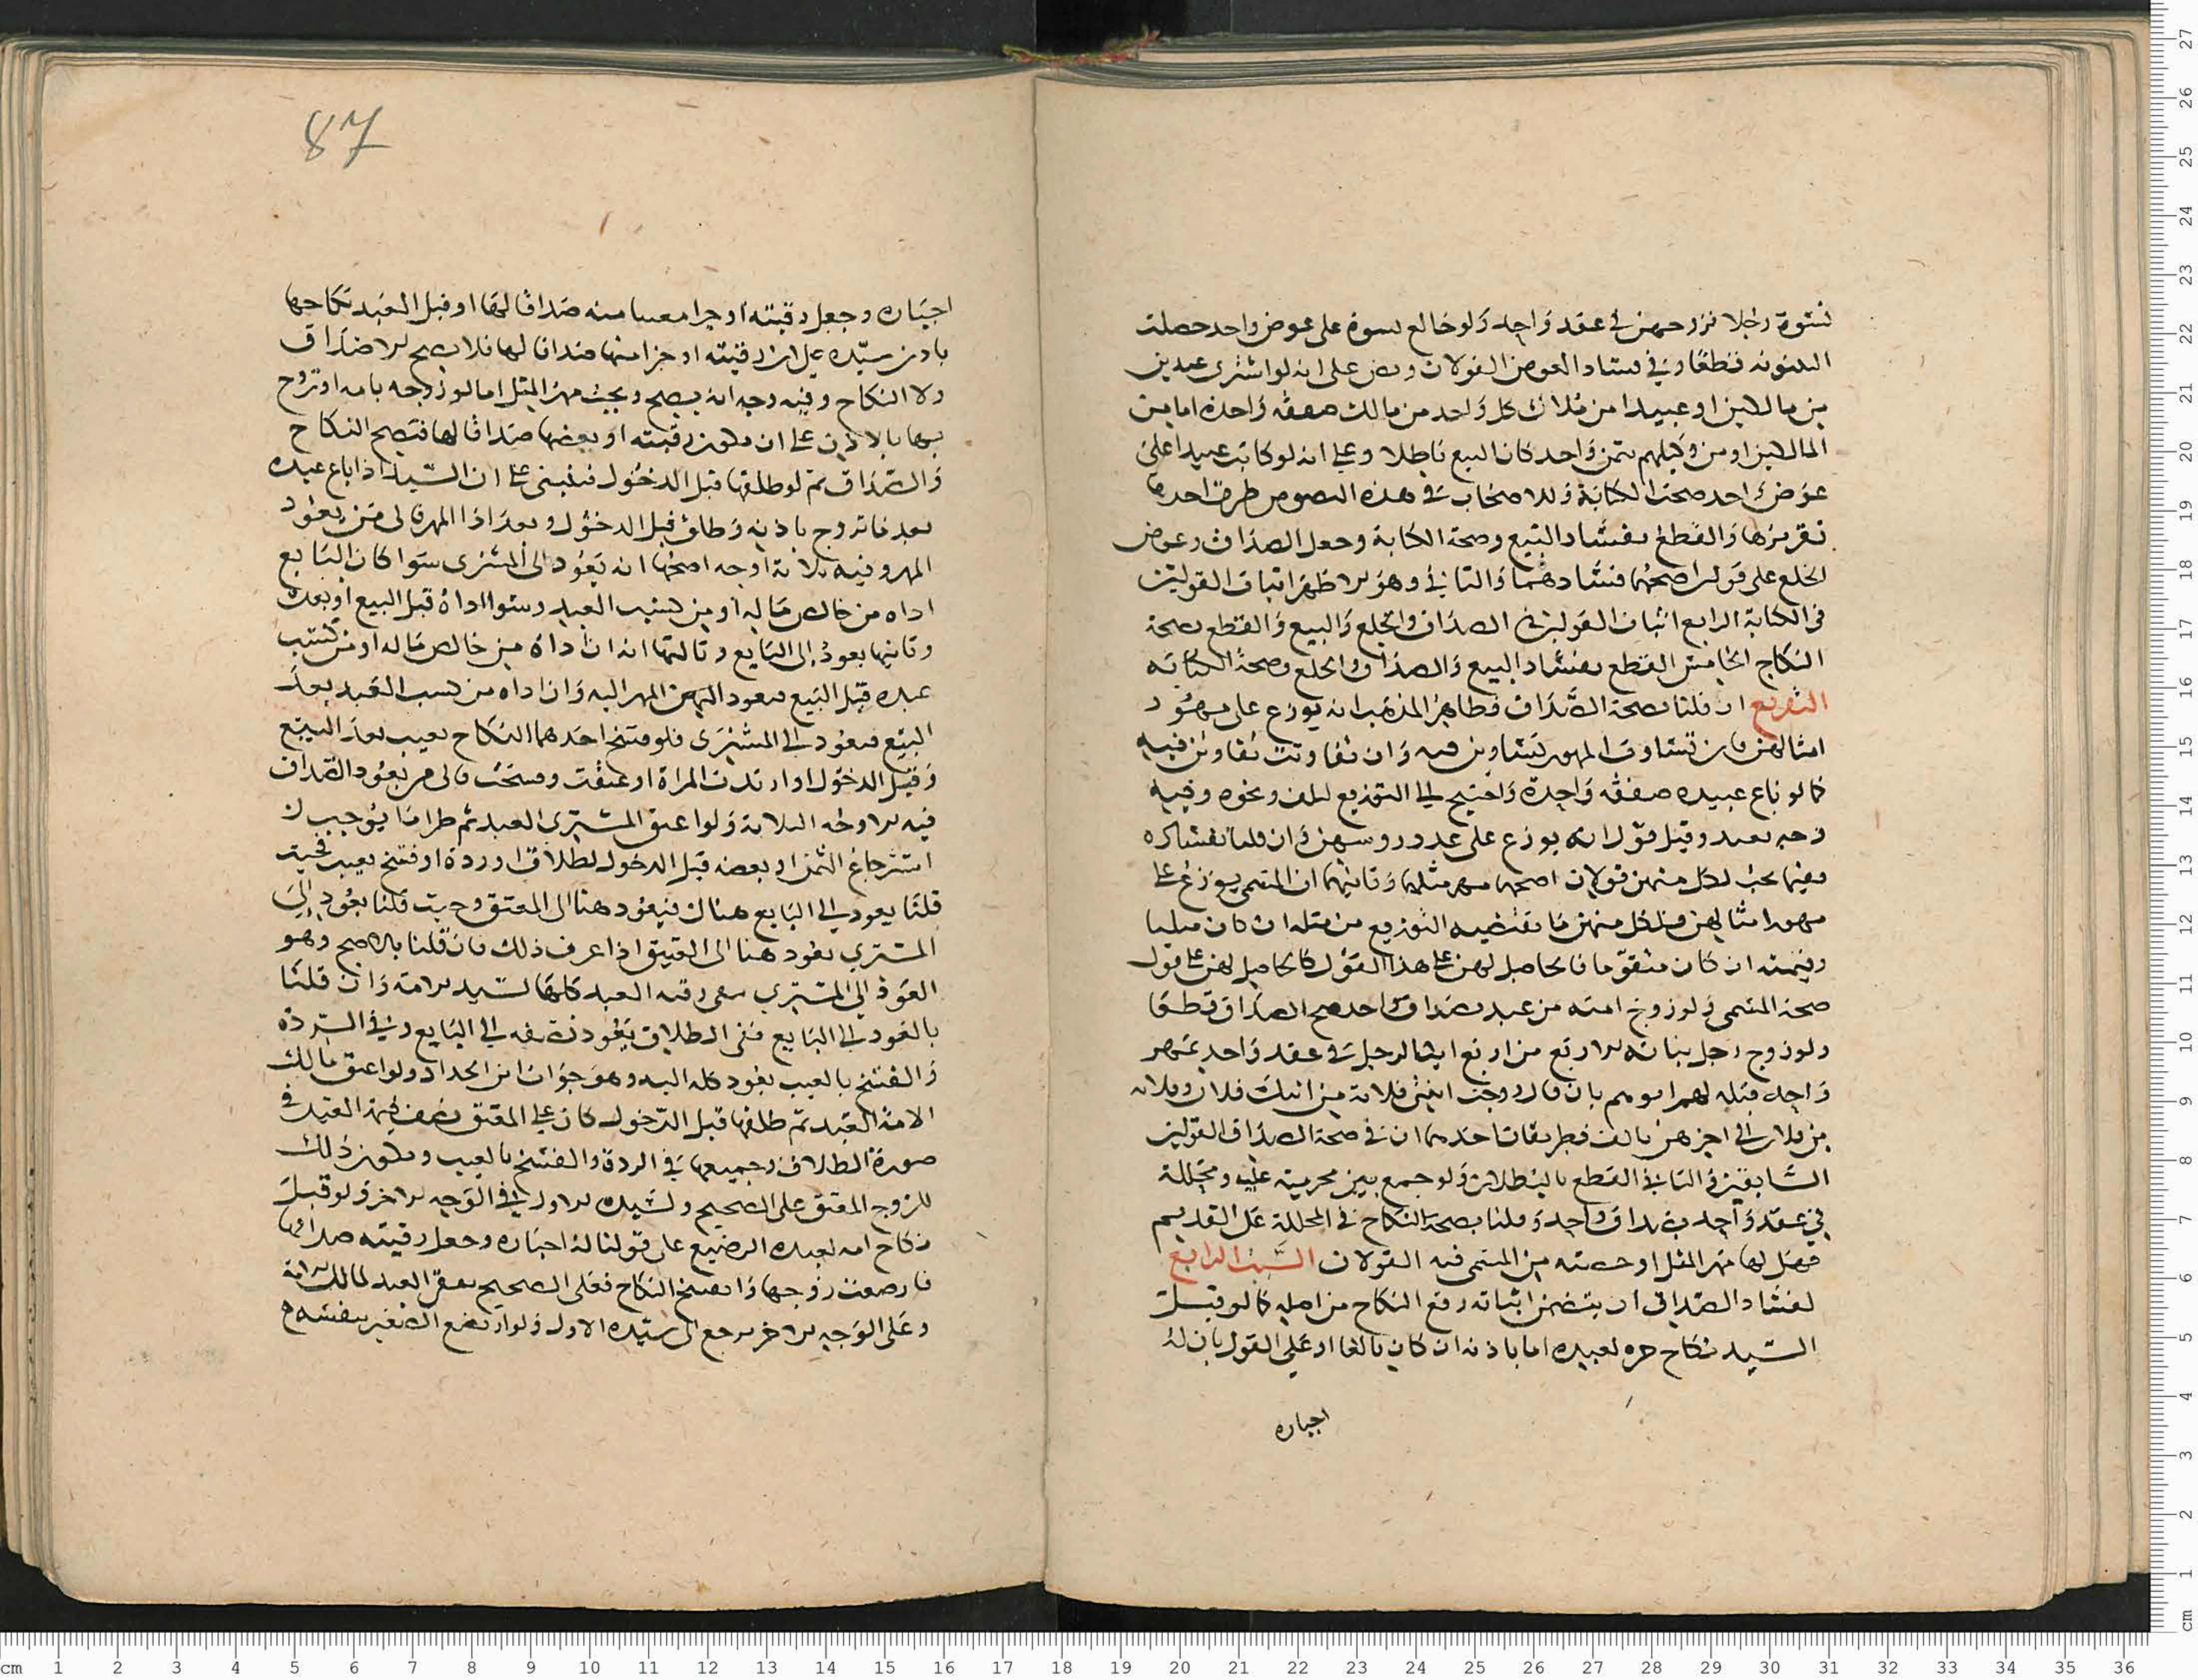 نسوة رجلا فزوجهن في عقد واحد ولو خالع نسوة على عوض واحد حصلت
البينونة قطعا وفي فساد العوض القولان ونص على انه لو اشترى عبدين
من مالكين او عبيدا من ملاك كل واحد من مالك صفقة واحدة اما من
المالكين او من وكيلهم بثمن واحد كان البيع باطلا وعلى انه لو كاتب عبيدا على
عوض واحد صحت الكتابة وللاصحاب في هذه النصوص طرق احدها
تقريرها والقطع بفساد البيع وصحة الكتابة وجعل الصداق وعوض
الخلع على قولين اصحهما فسادهما والثاني وهو الاظهر اثبات القولين
في الكتابة الرابع اثبات القولين في الصداق والخلع والبيع والقطع بصحة
النكاح الخامس القطع بفساد البيع والصداق والخلع وصحة الكتابة
التفريع ان قلنا بصحة الصداق فظاهر المذهب انه يوزع على مهور
امثالهن فان تساوت المهور تساوين فيه وان تفاوتت تفاوتن فيه
كما لو باع عبيده صفقة واحدة واحتيج الى التوزيع لتلف ونحوه وفيه
وجه بعيد وقيل قول انه يوزع على عدد روسهن وان قلنا بفساده
ففيما يجب لكل منهن قولان اصحهما مهر مثلها وثانيهما ان المسمى يوزع على
مهور امثالهن فلكل منهن ما يقتضيه التوزيع من مثله ان كان مثليا
وقيمته ان كان متقوما فالحاصل لهن على هذا القول كالحاصل لهن على قول
صحة المسمى ولو زوج امته من عبد بصداق واحد صح الصداق قطعا
ولو زوج رجل بناته الاربع من اربع ابنا لرجل في عقد واحد بمهر
واحد قبله لهم ابوهم بان قال زوجت ابنتي فلانة من ابنك فلان وفلانه
من فلان الى اخرهن بالف فطريقان احدهما ان في صحة الصداق القولين
السابقين والثاني القطع بالبطلان ولو جمع بين محرمية عليه ومحللة
في عقد واحد بصداق واحد وقلنا بصحة النكاح في المحللة على القديم
فهل لها مهر المثل او حصته من المسمى فيه القولان السبب الرابع
لفساد الصداق ان يتضمن اثباته رفع النكاح من اصله كما لو قبل
السيد نكاح حره لعبده اما باذنه ان كان بالغا او على القول بان له
اجباره
87
اجباره وجعل رقبته او جزا معينا منه صداقا لها او قبل العبد نكاحها
باذن سيده على ان رقبته او جزا منها صداقا لها فلا يصح الاصداق
ولا النكاح وفيه وجه انه يصح ويجب مهر المثل اما لو زوجه بامه او تزوج
بها بالاذن على ان تكون رقبته او بعضها صداقا لها فيصح النكاح
والصداق ثم لو طلقها قبل الدخول فينبني على ان السيد اذا باع عبده
بعد ما تزوج باذنه وطلق قبل الدخول وبعد ادا المهر فالى من يعود
المهر وفيه ثلاثة اوجه اصحها انه يعود الى المشتري سوا كان البايع
اداه من خالص ماله او من كسب العبد وسوا اداه قبل البيع او بعده
وثانيها يعود الى البايع وثالثها انه ان اداه من خالص ماله او من كسب
عبده قبل البيع فيعود اليه من المهر اليه وان اداه من كسب العبد بعد
البيع فيعود الى المشتري فلو فسخ احدهما النكاح بعيب بعد البيع
وقبل الدخول او ارتدت المراة او عتقت وفسخت فالى من يعود الصداق
فيه الاوجه الثلاثة ولو اعتق المشتري العبد ثم طرا ما يوجب
استرجاع الثمن او بعضه قبل الدخول لطلاق او ردة او فسخ بعيب فحيث
قلنا يعود الى البايع هناك فيعود هنا الى المعتق وحيث قلنا يعود الى
المشتري يعود هنا الى العتيق اذا عرف ذلك فان قلنا بالاصح وهو
العود الى المشتري بقي رقبه العبد كلها لسيد الامة وان قلنا
بالعود الى البايع ففي الطلاق يعود نصفه الى البايع وفي الردة
والفسخ بالعيب يعود كله اليه وهو جواب ابن الحداد ولو اعتق مالك
الامة العبد ثم طلقها قبل الدخول كان على المعتق نصف قيمة العبد في
صورة الطلاق وجميعها في الردة والفسخ بالعيب ويكون ذلك
للزوج المعتق على الصحيح ولسيده الاول في الوجه الاخر ولو قبل
نكاح امه لعبده الرضيع على قولنا له اجباره وجعل رقبته صداقها
فارضعت زوجها وانفسخ النكاح فعلى الصحيح بقي العبد لمالك الامة
وعلى الوجه الاخر يرجع الى سيده الاول ولو ارتضع الصغير بنفسه